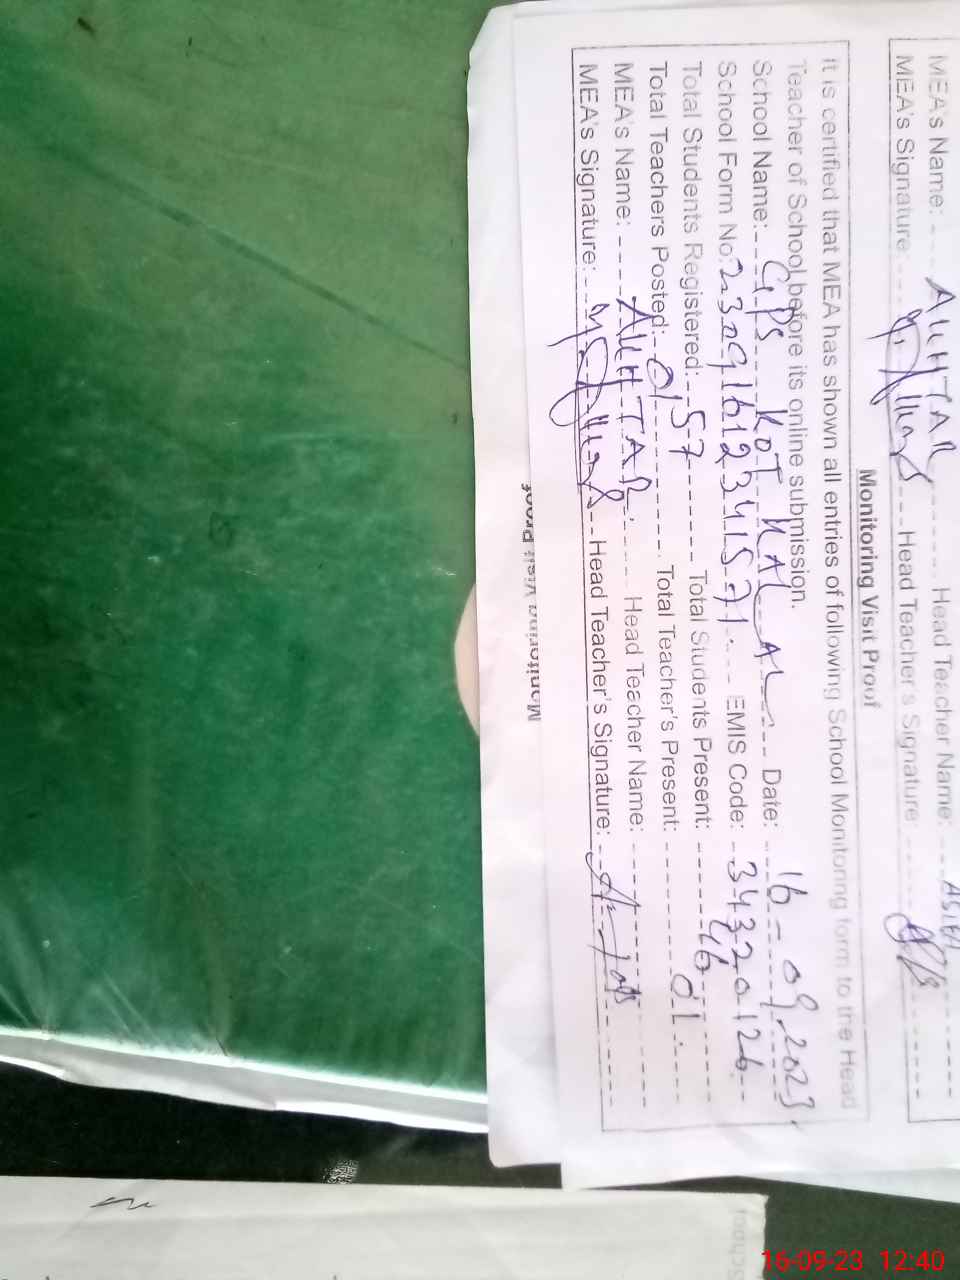 MEA's Name: AKHTAR Head Teacher Name: ASIFA
MEA's Signature: Head Teacher's Signature:
Monitoring Visit Proof
It is certified that MEA has shown all entries of following School Monitoring form to the Head
Teacher of School before its online submission.
School Name: GPS KOT KALAL Date: 16-09-2023
School Form No: EMIS Code: 34320126
Total Students Registered: 57 Total Students Present: 46
Total Teachers Posted: 01 Total Teacher's Present: 01
MEA's Name: AKHTAR Head Teacher Name:
MEA's Signature: Head Teacher's Signature:
Monitoring Visit Proof
16-09-23 12:40